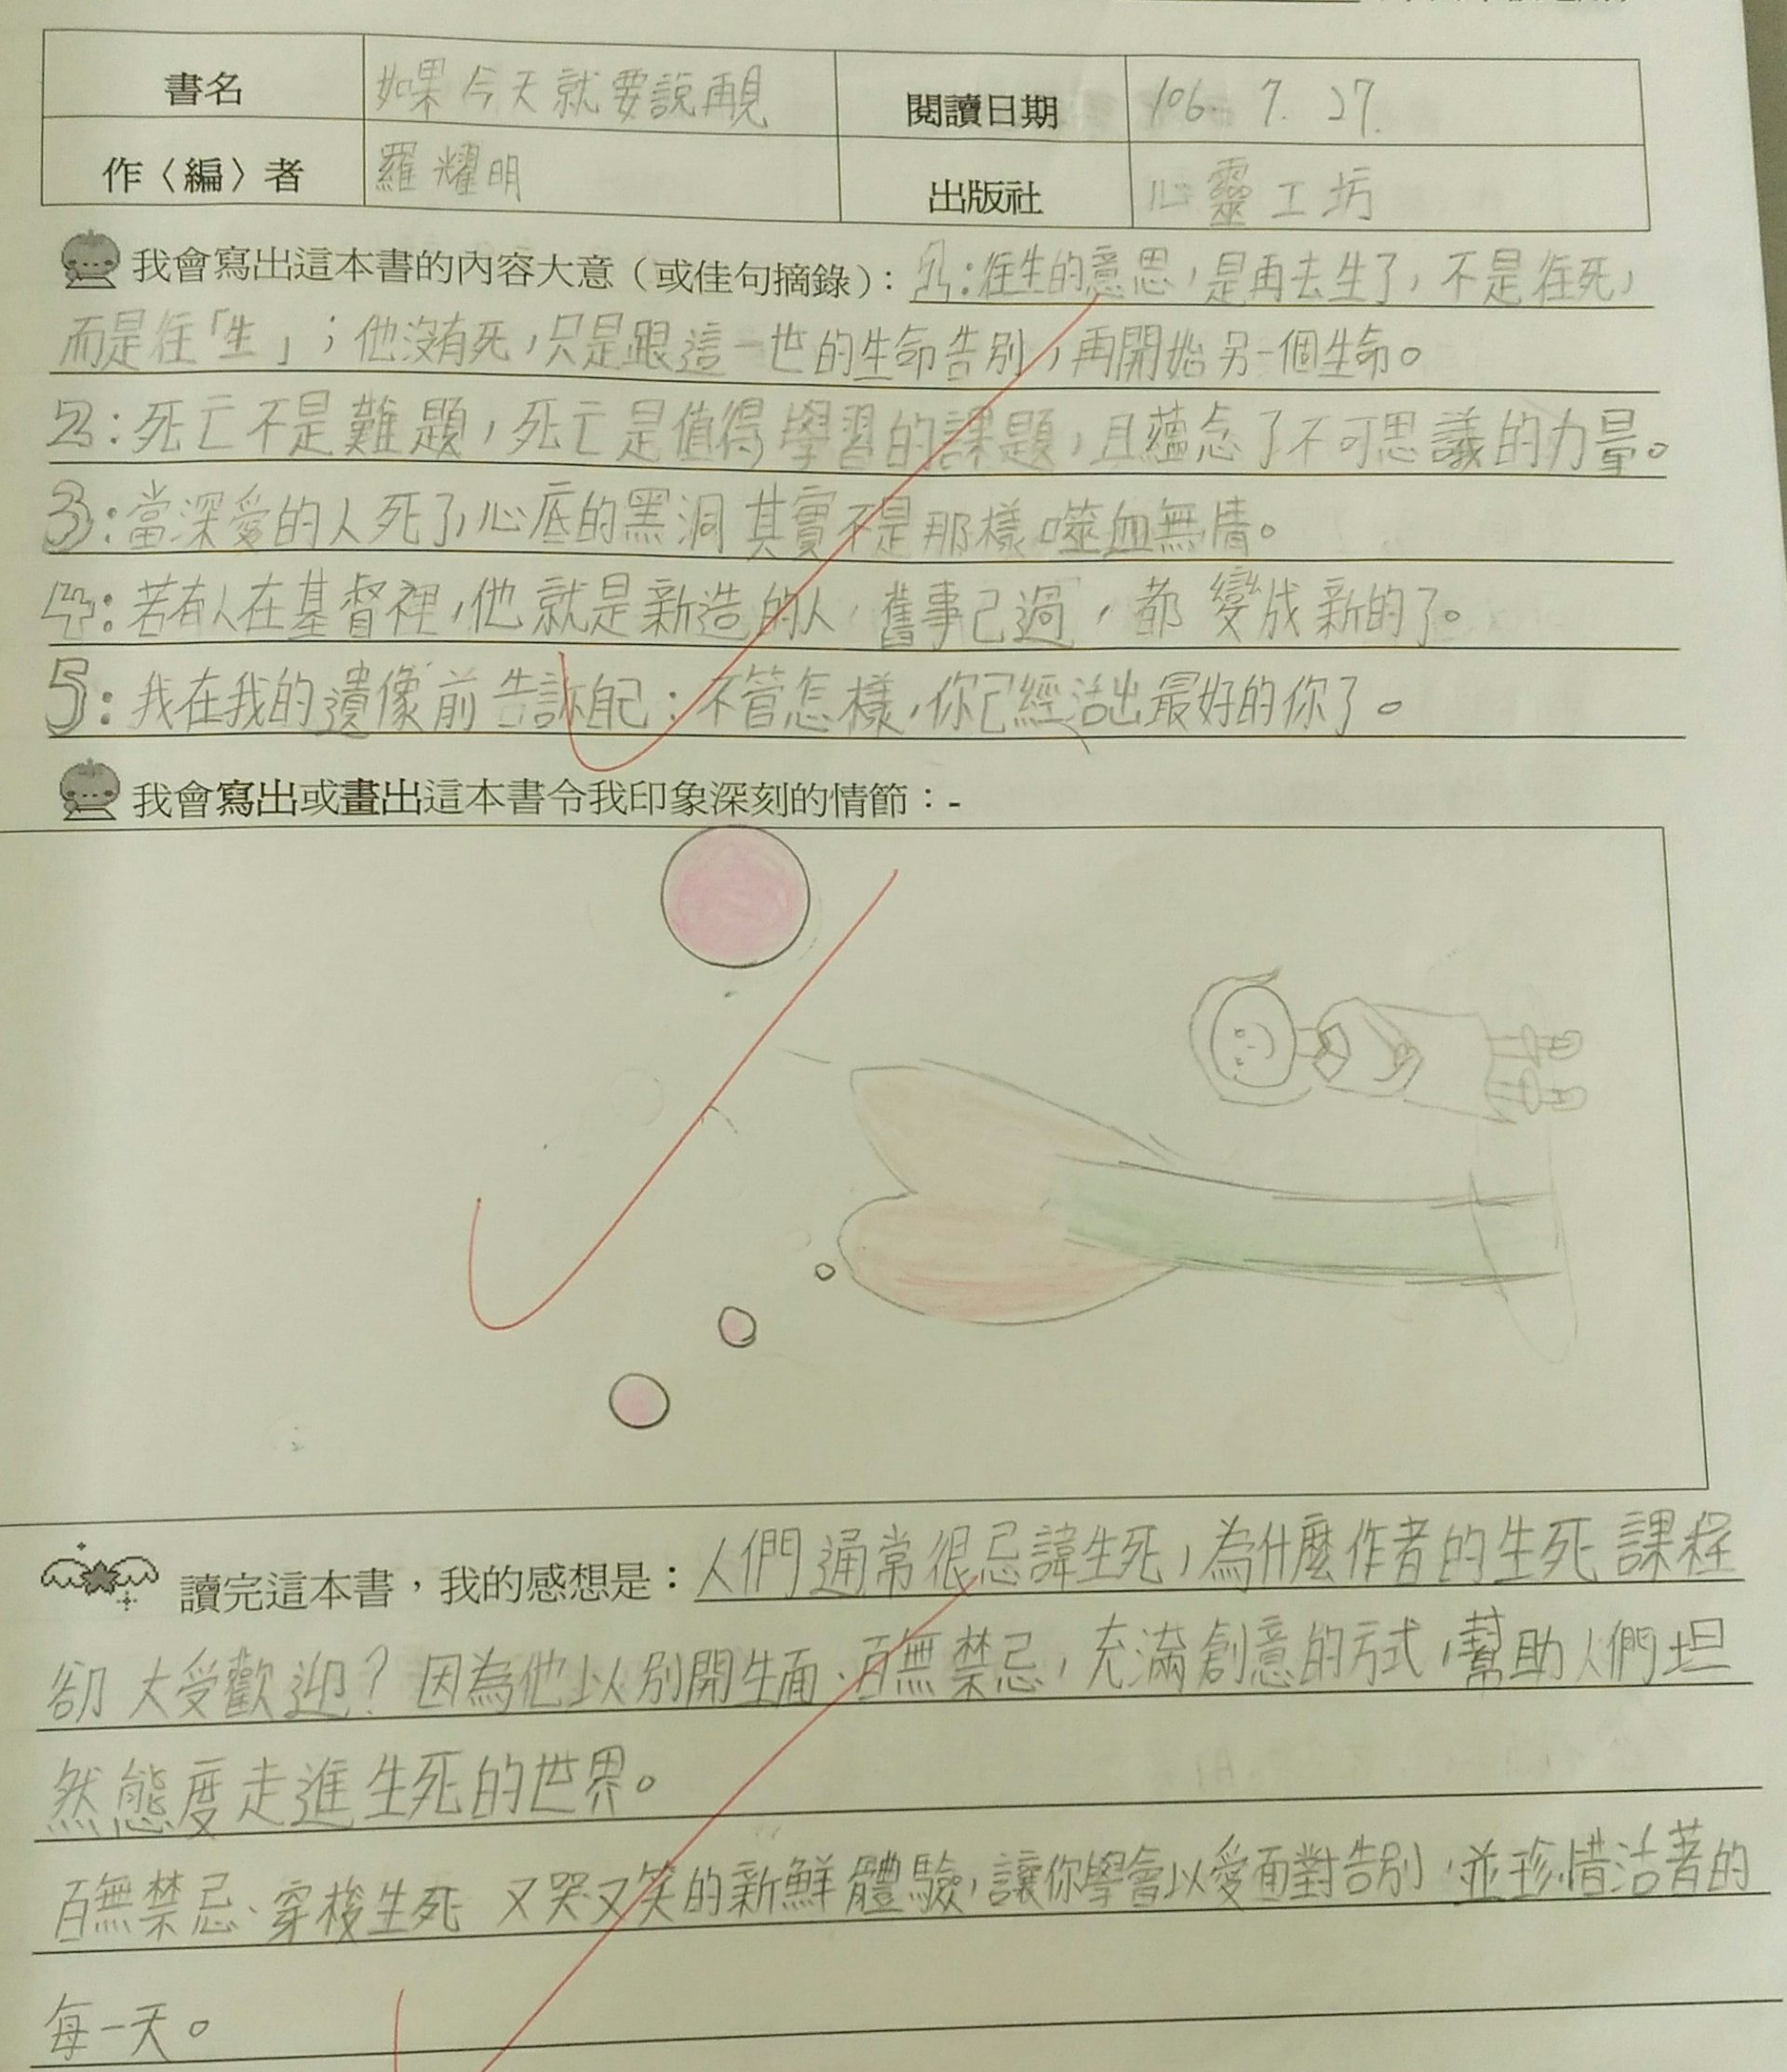 書名 如果今天就要說再見 閱讀日期 106. 7. 27.
作〈編〉者 羅耀明 出版社 心靈工坊
我會寫出這本書的內容大意(或佳句摘錄):1:往生的意思,是再去生了,不是往死,
而是往「生」;他沒有死,只是跟這一世的生命告別,再開始另一個生命。
2:死亡不是難題,死亡是值得學習的課題,且蘊念了不可思議的力量。
3:當深愛的人死了,心底的黑洞其實不是那樣噬血無情。
4:若有人在基督裡,他就是新造的人,舊事己過,都變成新的了。
5:我在我的遺像前告訴自己:不管怎樣,你己經活出最好的你了。
我會寫出或畫出這本書令我印象深刻的情節:-
讀完這本書,我的感想是:人們通常很忌諱生死,為什麼作者的生死課程
卻大受歡迎?因為他以別開生面、百無禁忌,充滿創意的方式,幫助人們坦
然態度走進生死的世界。
百無禁忌、穿梭生死 又哭又笑的新鮮體驗,讓你學會以愛面對告別,並珍惜活著的
每一天。